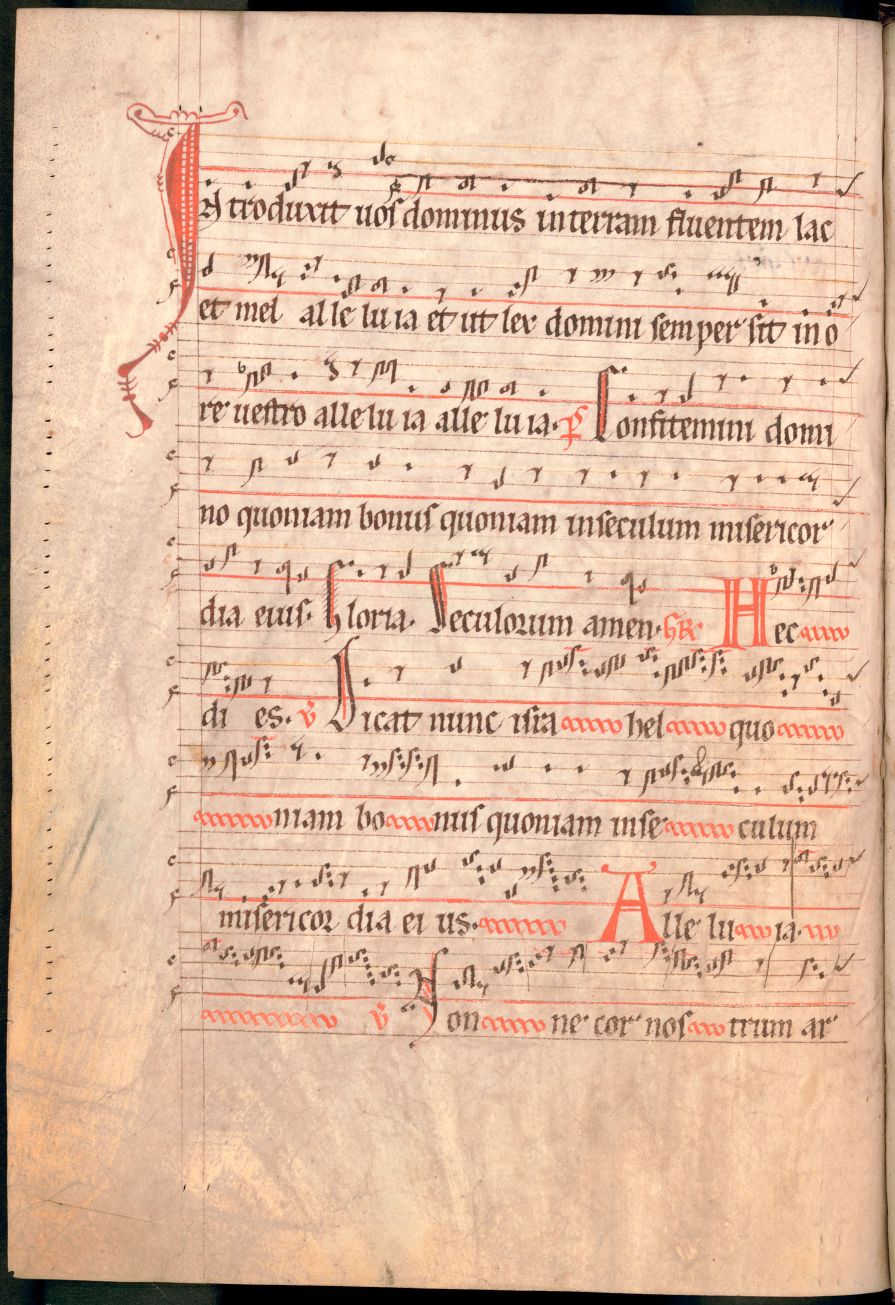 Introduxit uos dominus interram fluentem lac
et mel alle lu ia et ut lex domini semper sit in o
re uestro alle lu ia alle lu ia. p̄s Confitemini domi
no quoniam bonus quoniam inseculum misericor
dia eius. Gloria. Seculorum amen. Hec
di es. v̄ Dicat nunc isra hel quo
niam bo nus quoniam inse culum
misericor dia ei us. Alle lu ia.
v̄ Non ne cor nos trum ar